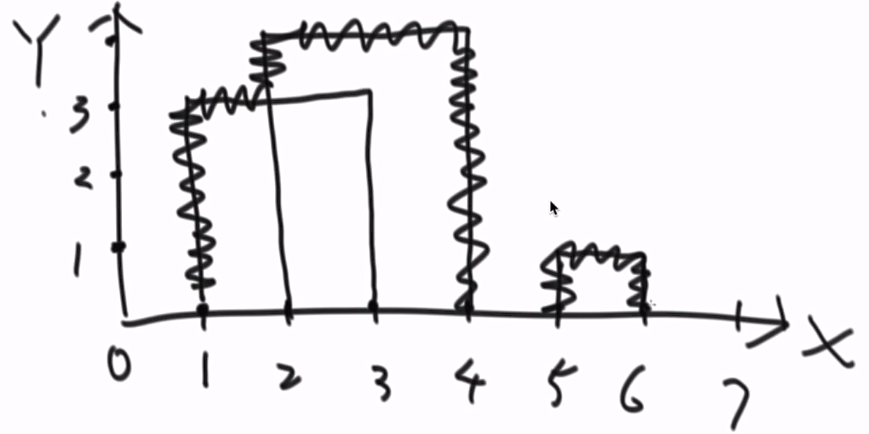 Y
3
2
1
0 1 2 3 4 5 6 7
X